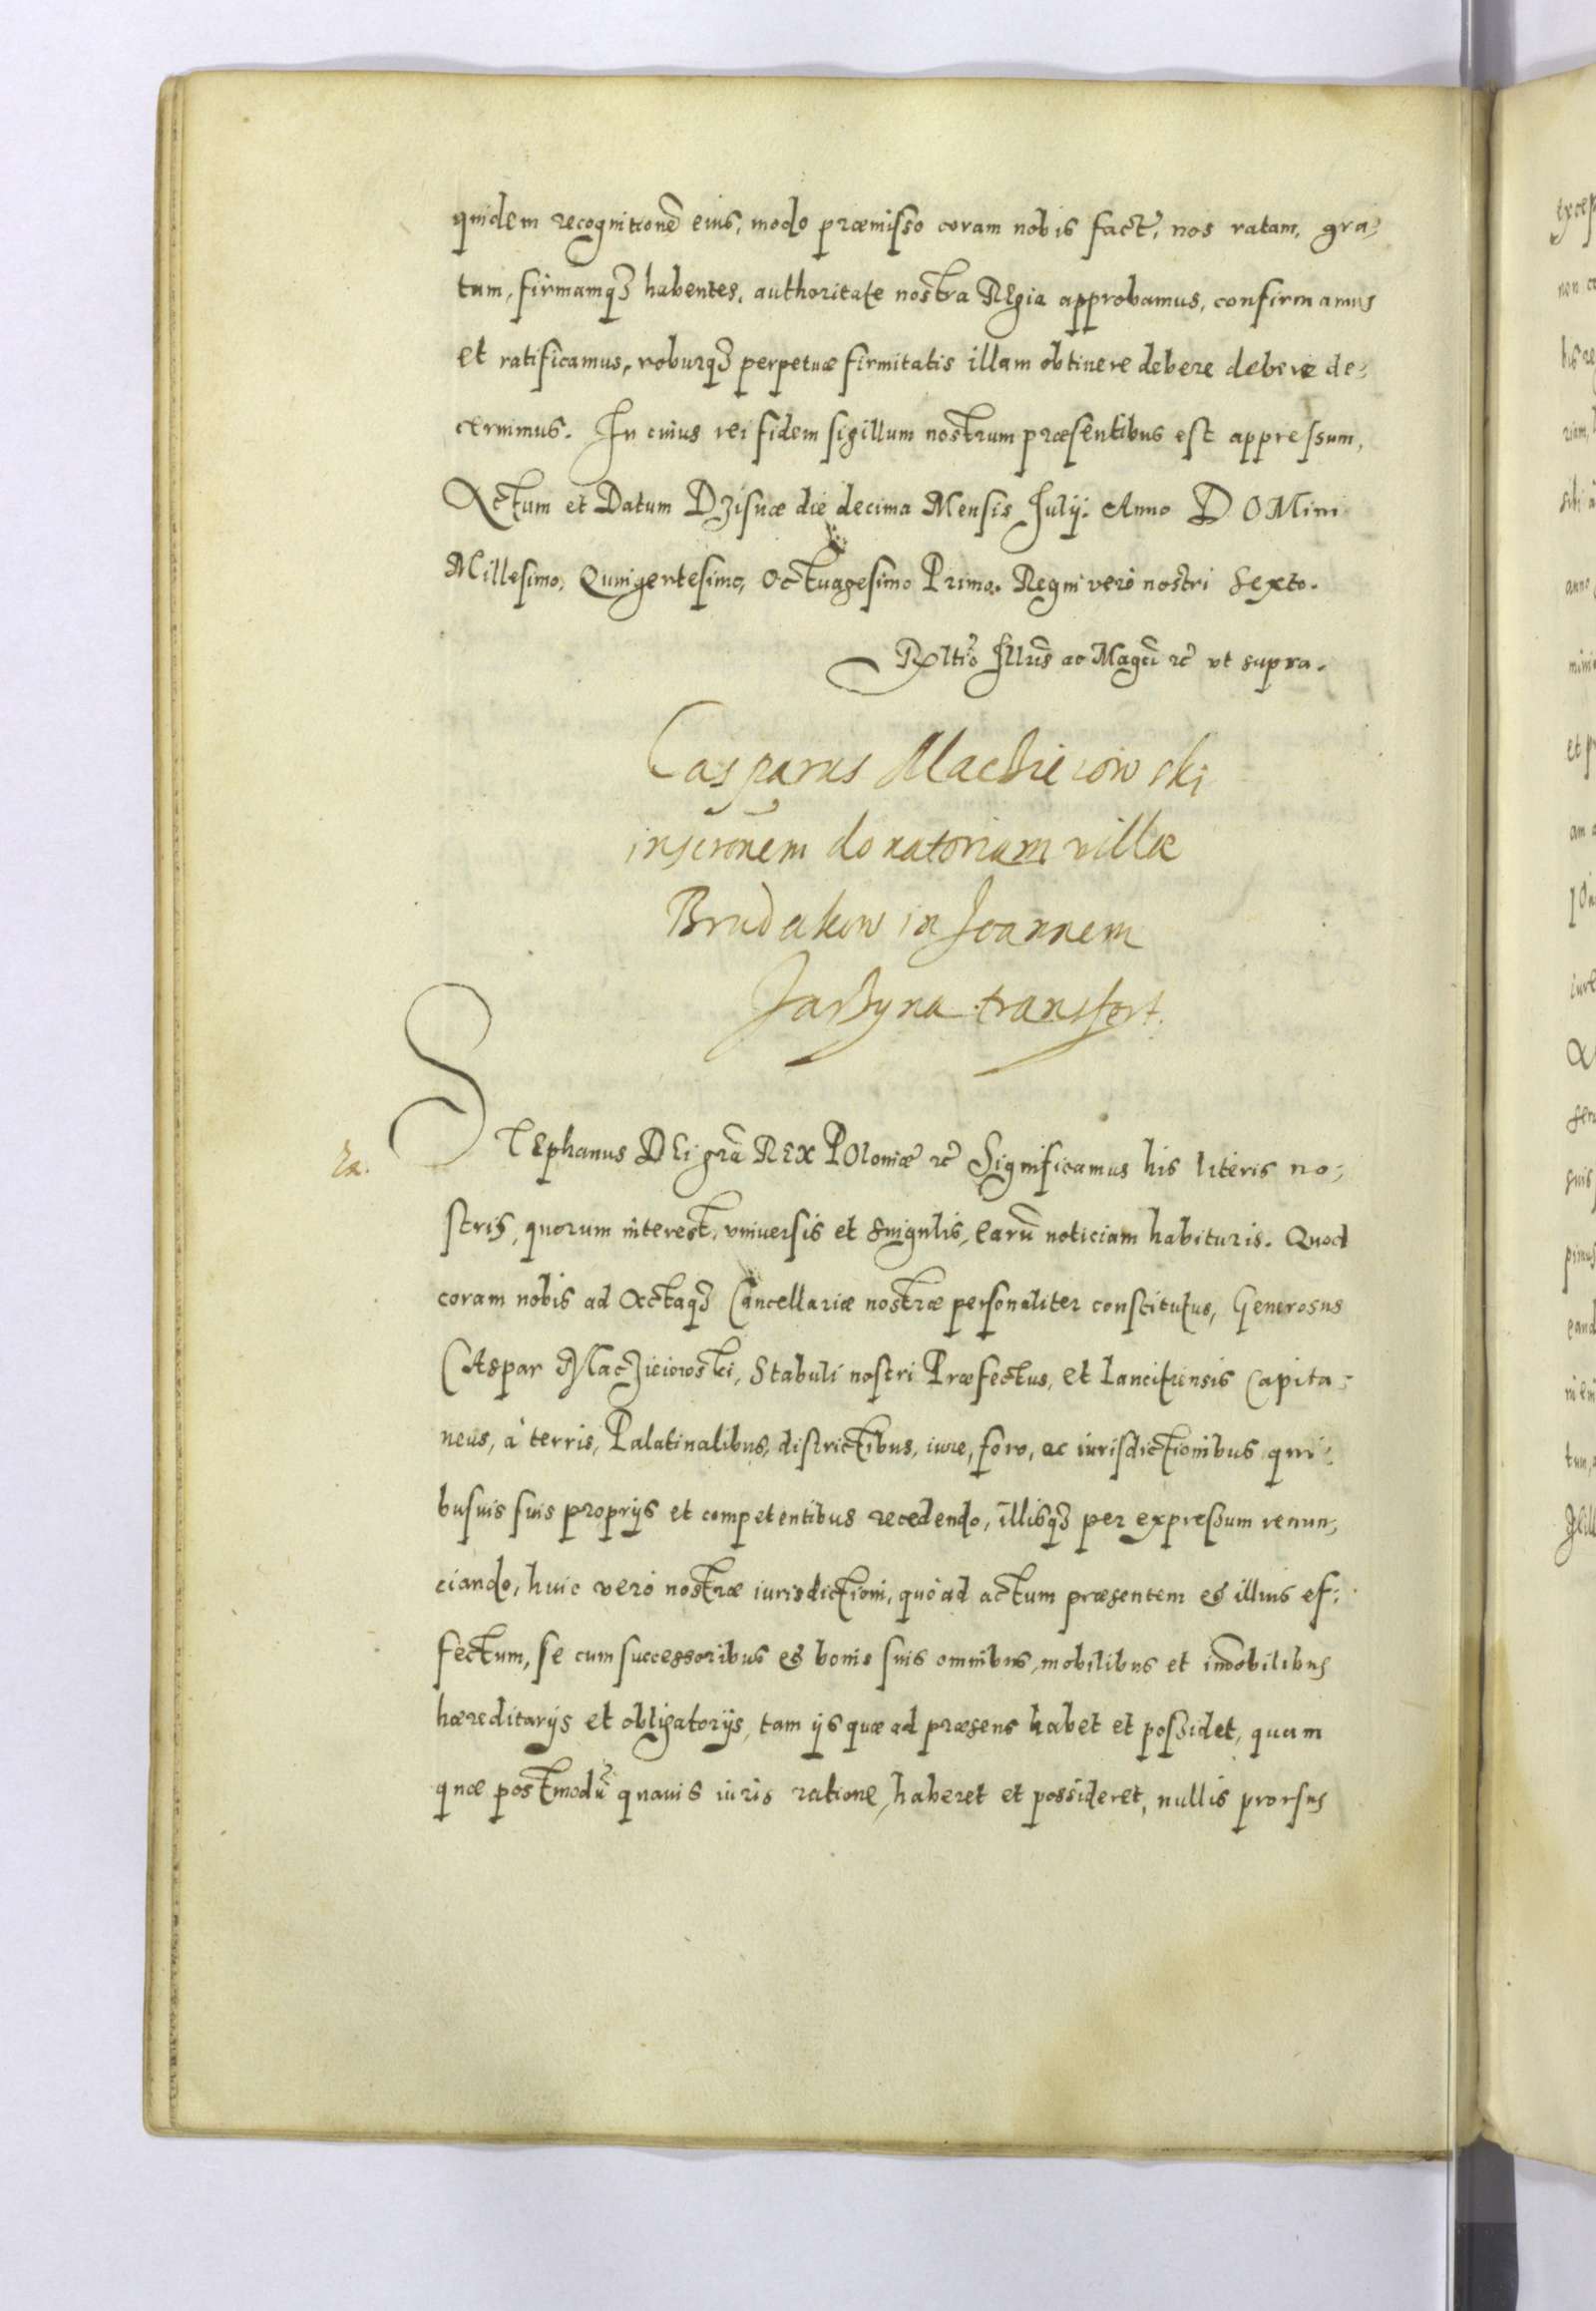 quidem recognitionẽ eius, modo præmisso coram nobis fact̃, nos ratam, gra-
tam, firmamq3 habentes, authoritate nostra REgia approbamus, confirmamus
et ratificamus, roburq3 perpetuæ firmitatis illam obtinere debere debere de-
cernimus. In cuius rei fidem sigillum nostrum præsentibus est appressum,
Actum et Datum Dzisnæ die decima Mensis Julij. Anno DOMini
Millesimo, Quingentesimo, Octuagesimo Primo. Regni verò nostri Sexto.
Rℓtio Illũs ac Magci ꝛc̃ vt supra.
Casparus Maczieiowski
inscrõnem donatoriam villæ
Brudakow in Joannem
Jarzyna transfert.
STEphanus DEi grã REX POloniæ ꝛc̃ Significamus his literis no-
stris, quorum interest, vniuersis et singulis, earũ noticiam habituris. Quod
coram nobis ad Actaq3 Cancellariæ nostræ personaliter constitutus, Generosus
CAspar Macziciowski, Stabuli nostri Præfectus, et Lancitiensis Capita-
neus, à terris, Palatinalibus, districtibus, iure, foro, ac iurisdictionibus qui-
busuis suis proprijs et competentibus recedendo, illisq3 per expressum renun-
ciando, huic verò nostræ iurisdictioni, quò ad actum præsentem & illius ef-
fectum, se cum successoribus & bonis suis omnibus, mobilibus et im̃obilibus
hæreditarijs et obligatorijs, tam ijs quæ ad præsens habet et possidet, quam
quæ postmodũ quauis iuris ratione, haberet et possideret, nullis prorsus